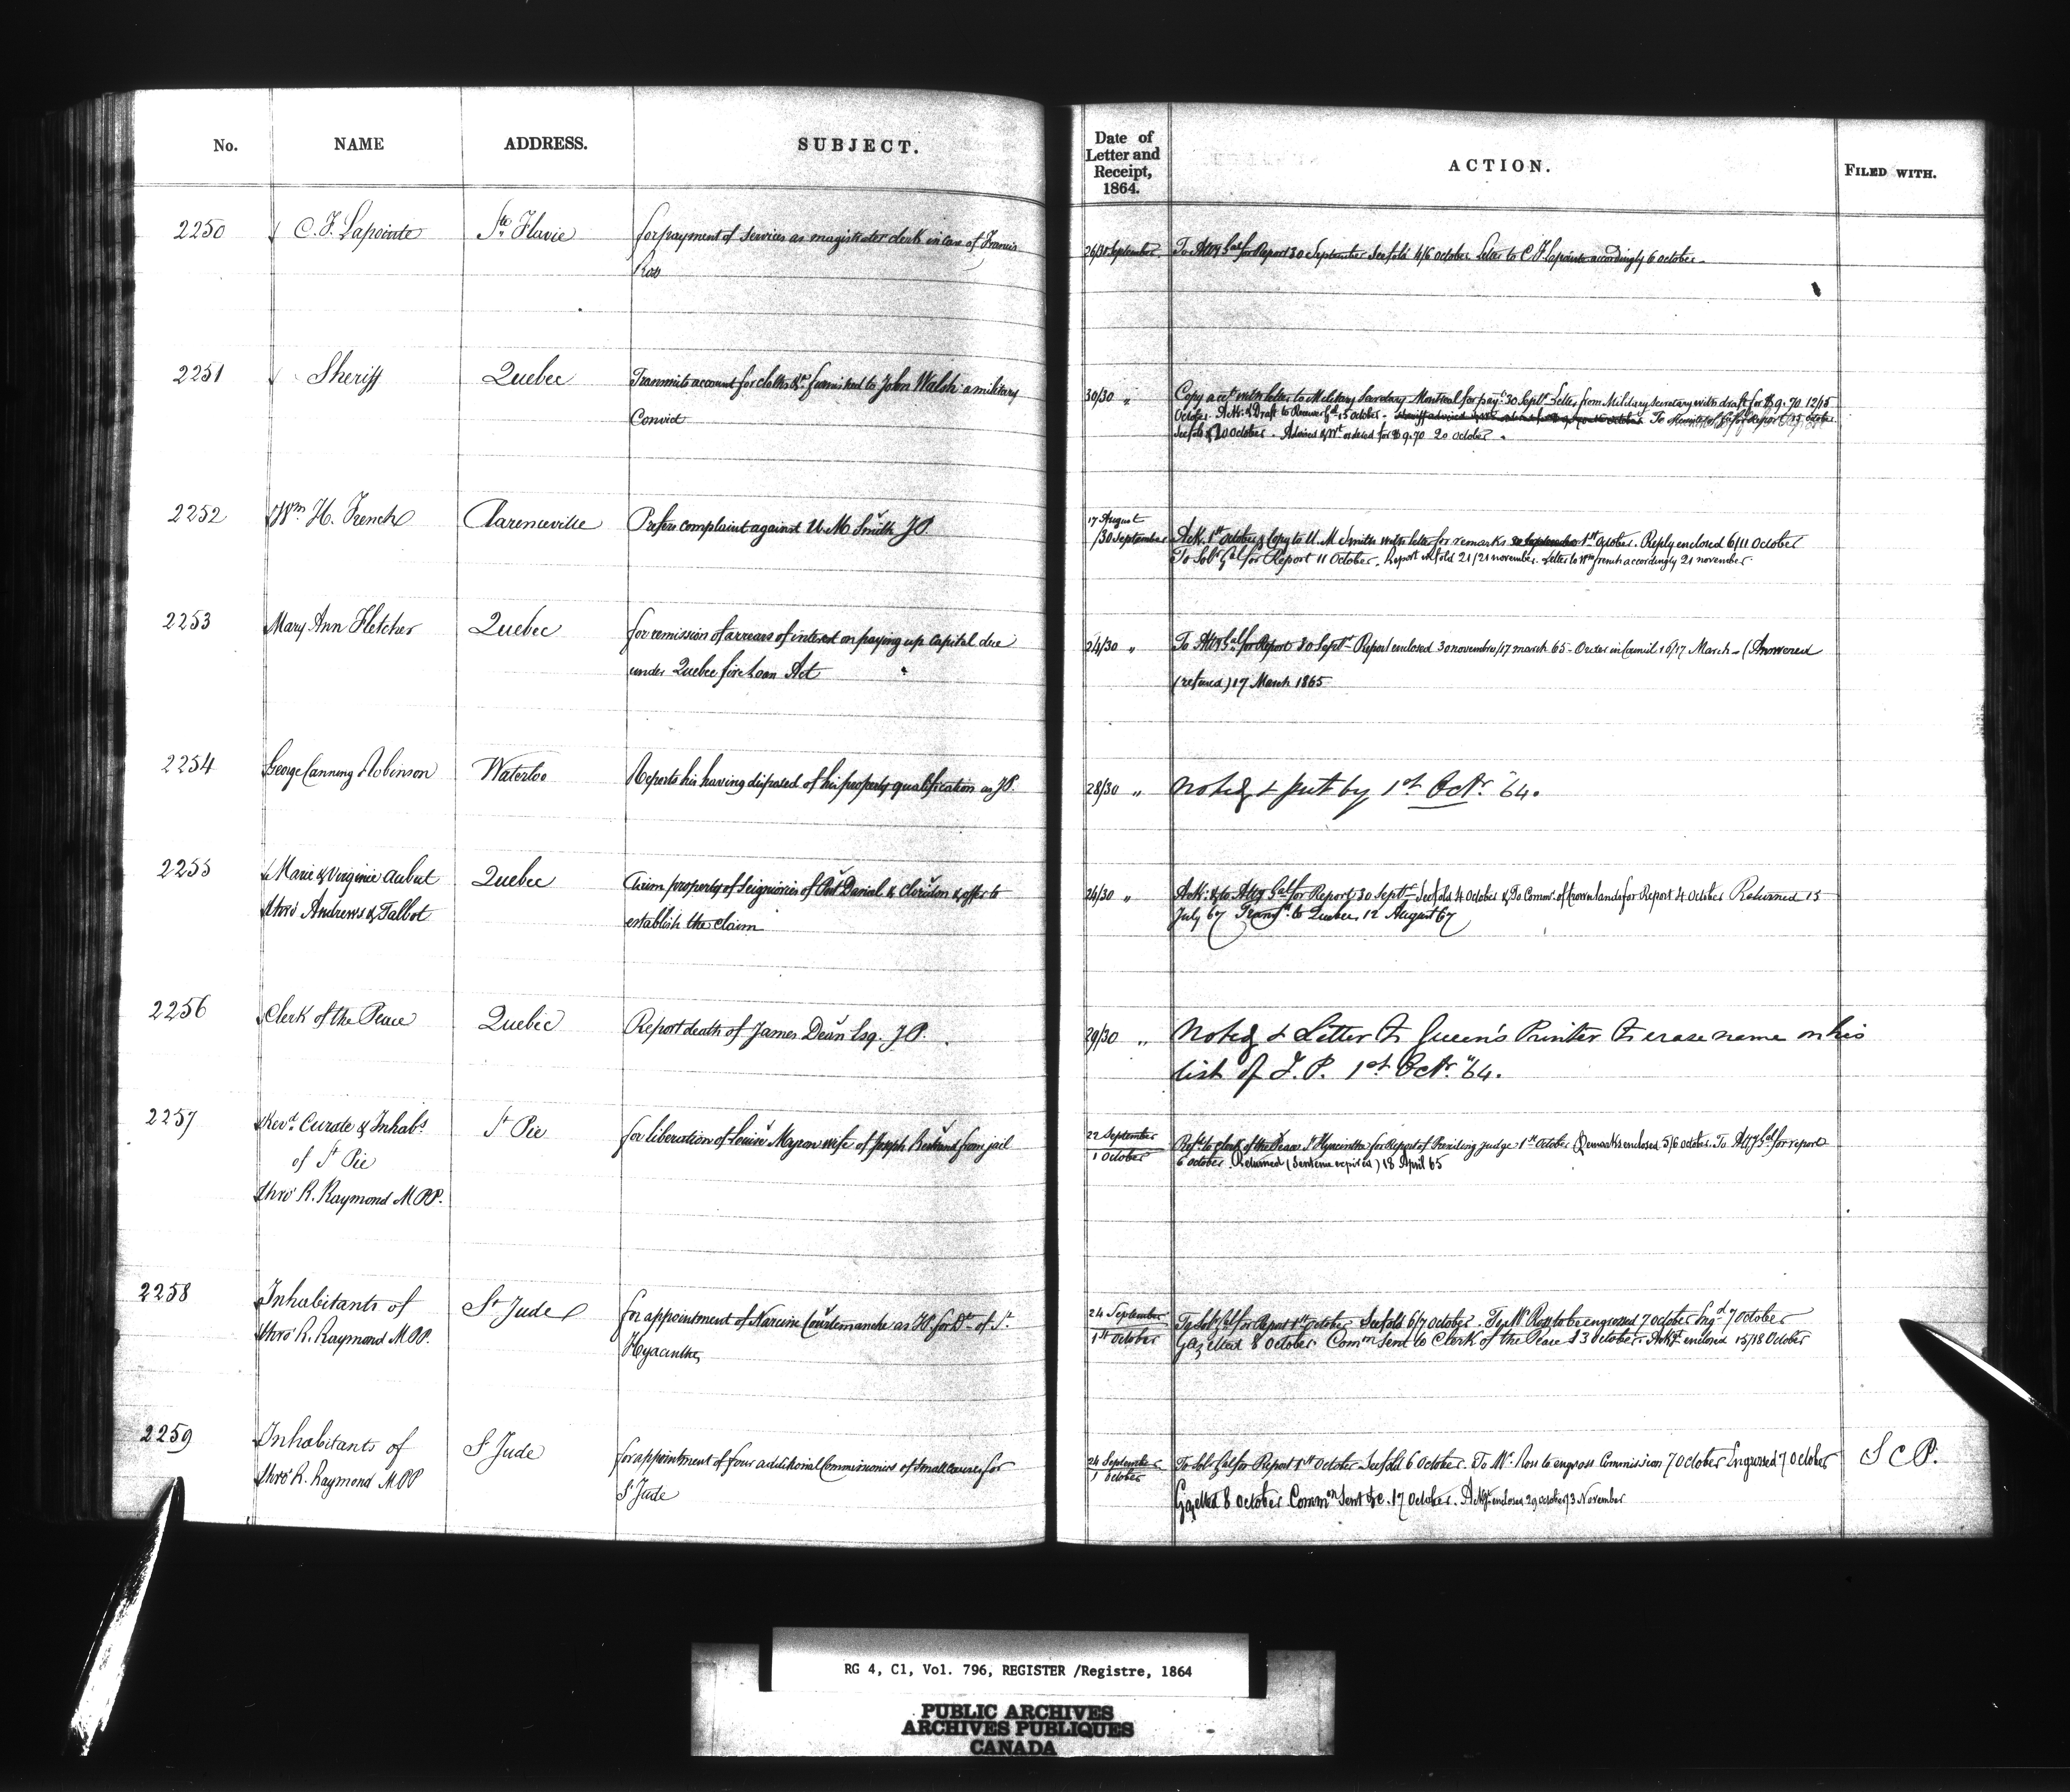 No. NAME ADDRESS. SUBJECT.
Date of Letter and Receipt, 1864. ACTION. FILED WITH.
2250 C. F. Lapointe Ste. Flavie for payment of services as magistrates clerk in case of Francis
Ross
26/30 September To Atty Genl for Report 30 September See fold 4/6 October Letter to C F Lapointe accordingly 6 october
2251 Sheriff Quebec Transmits account for cloths &c furnished to John Walsh a military
Convict
30/30 " Copy acct with letter to Military Secretary Montreal for payt 30 Septr Letter from Military Secretary with draft for $9.70 12/15
October. Ack: & Draft to Receiver Gl 15 October - To for Report 15 october
See fold 20 October. Advised & Wt ordered for $9.70 20 october.
2252 Wm H. French Clarenceville Prefers complaint against U. M. Smith J.P.
17 August
/30 September Ack. 1st october & Copy to U. M Smith with letter for remarks 30 September 1st October. Reply enclosed 6/11 October
To Solr Gal for Report 11 October. Report in fold 21/21 november. Letter to Wm french accordingly 21 november
2253 Mary Ann Fletcher Quebec for remission of arrears of interest on paying up capital due
under Quebec fire Loan Act
24/30 " To Atty Gal for Report 30 Septr Report enclosed 30 november/17 march 65 - Order in Council 16/17 March - (Answered
(refused) 17 March 1865
2254 George Canning Robinson Waterloo Reports his having disposed of his property qualification as J.P.
28/30 " Noted & put by 1st Octr "64.
2255 Marie & Virginie Aubut Quebec Claim property of Seigniories of Port Daniel & Cloridon & offer to
thro' Andrews & Talbot establish the claim
24/30 " Ack: & to Atty Gal for Report 30 Septr See fold 4 October & To Commr of Crown lands for Report 4 October Returned 15
July 67 Transfd to Quebec 12 August 67
2256 Clerk of the Peace Quebec Report death of James Dean Esq. J.P.
29/30 " Noted & Letter to Queen's Printer to erase name on his
list of J. P. 1st Octr "64.
2257 Revd Curate & Inhabs St Pie for liberation of Louise Mayon wife of Joseph Bertrand from jail
of St Pie
thro' R. Raymond M.P.P.
22 September
1 October
Refd to Clerk of the Peace St Hyacinthe for Report of Presiding Judge 1st October Remarks enclosed 5/6 october. To Atty Gal for report
6 october. Returned (sentence expired) 18 April 65
2258 Inhabitants of St Jude for appointment of Narcisse Courtemanche as J.P. for Dt. of St.
thro' R. Raymond M.P.P. Hyacinthe
24 September
1st October
To Solr Gal for Report 1st October See fold 6/7 october. To Mr Ross to be engrossed 7 october Engd 7 October
Gazetted 8 October. Commn sent to Clerk of the Peace 13 october. Ackt enclosed 15/18 October
2259 Inhabitants of St Jude for appointment of four additional Commissioners of small causes for
thro' R. Raymond M.P.P St Jude
24 September
1 October
To Solr Gal for Report 1st October See fold 6 October. To Mr. Ross to engross Commission 7 October Engrossed 7 October S C P.
Gazetted 8 October Commn sent &c. 17 October. Ackgt enclosed 29 october/3 November
RG 4, C1, Vol. 796, REGISTER /Registre, 1864
PUBLIC ARCHIVES
ARCHIVES PUBLIQUES
CANADA